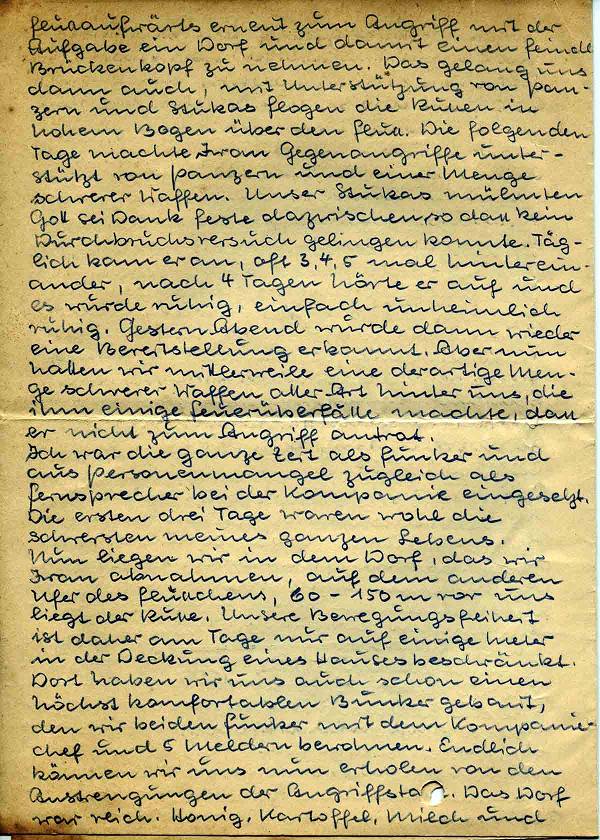 flußaufwärts erneut zum Angriff mit der
Aufgabe ein Dorf und damit einen feindl.
Brückenkopf zu nehmen. Das gelang uns
dann auch, mit Unterstützung von Pan-
zern und Stukas flogen die Russen in
hohem Bogen über den Fluß. Die folgenden
Tage machte Iwan Gegenangriffe unter-
stützt von Panzern und einer Menge
schwerer Waffen. Unser Stukas mülmten
Gott sei Dank feste dazwischen, so daß kein
Durchbruchsversuch gelingen konnte. Täg-
lich kam er an, oft 3, 4, 5 mal hinterein-
ander, nach 4 Tagen hörte er auf und
es wurde ruhig, einfach unheimlich
ruhig. Gestern Abend wurde dann wieder
eine Bereitstellung erkannt. Aber nun
hatten wir mittlerweile eine derartige Men-
ge schwerer Waffen aller Art hinter uns, die
ihm einige Feuerüberfälle machte, daß
er nicht zum Angriff antrat.
Ich war die ganze Zeit als Funker und
aus Personenmangel zugleich als
Fernsprecher bei der Kompanie eingesetzt.
Die ersten drei Tage waren wohl die
schwersten meines ganzen Lebens.
Nun liegen wir in dem Dorf, das wir
Iwan abnahmen, auf dem anderen
Ufer des Flüßchens, 60 - 150 m vor uns
liegt der Russe. Unsere Bewegungsfreiheit
ist daher am Tage nur auf einige Meter
in der Deckung eines Hauses beschränkt.
Dort haben wir uns auch schon einen
höchst komfortablen Bunker gebaut,
den wir beiden Funker mit dem Kompanie-
chef und 5 Meldern bewohnen. Endlich
können wir uns nun erholen von den
Anstrengungen der Angriffstage. Das Dorf
war reich. Honig, Kartoffel, Milch und